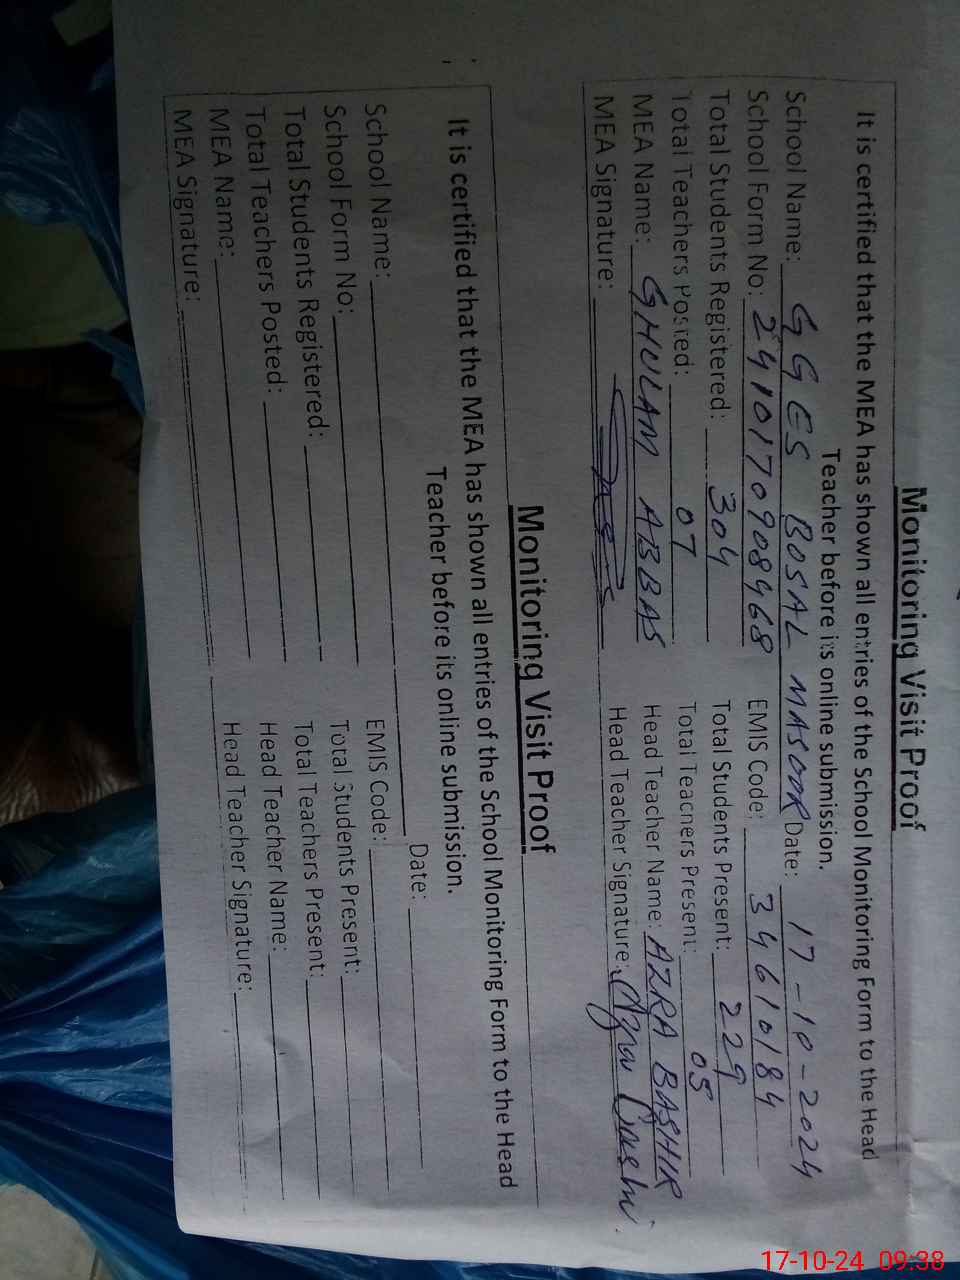 Monitoring Visit Proof
It is certified that the MEA has shown all entries of the School Monitoring Form to the Head
Teacher before its online submission.
School Name: GGES BOSAL MASOOR Date: 17-10-2024
School Form No: 2410170908468 EMIS Code: 34610184
Total Students Registered: 304 Total Students Present: 229
Total Teachers Posted: 07 Total Teachers Present: 05
MEA Name: GHULAM ABBAS Head Teacher Name: AZRA BASHIR
MEA Signature: Head Teacher Signature: Azra
Monitoring Visit Proof
It is certified that the MEA has shown all entries of the School Monitoring Form to the Head
Teacher before its online submission.
School Name: Date:
School Form No: EMIS Code:
Total Students Registered: Total Students Present:
Total Teachers Posted: Total Teachers Present:
MEA Name: Head Teacher Name:
MEA Signature: Head Teacher Signature:
17-10-24 09:38